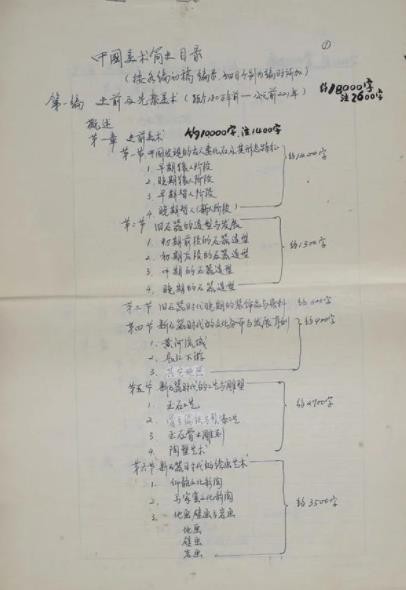 ①
中国美术简史目录
(按各编初稿编录,细目个别为编时所加)
第一编 史前及先秦美术 (距今180万年前—公元前221年) 约18000字 注2600字
概述
第一章 史前美术 约10000字,注1400字
第一节 中国发现的古人类化石及其形态特征
1. 早期猿人阶段
2. 晚期猿人阶段
3. 早期智人阶段
4. 晚期智人(新人阶段)
第二节 旧石器的造型与发展 约1300字
1. 初期前段的石器造型
2. 初期后段的石器造型
3. 中期的石器造型
4. 晚期的石器造型
第三节 旧石器时代晚期的装饰品与颜料
第四节 新石器时代的文化分布与发展序列 约900字
1. 黄河流域
2. 长江下游
3. 其它地区
第五节 新石器时代的工艺与雕塑 约2700字
1. 玉石工艺
2.
3. 玉石骨木雕刻
4. 陶塑艺术
第六节 新石器时代的绘画艺术 约3500字
1. 仰韶文化彩陶
2. 马家窑文化彩陶
3. 地画壁画与岩画
地画
壁画
岩画